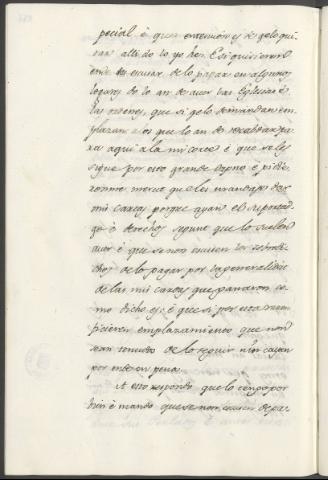 pecial é quen exemiones de gelo qui
tan alli do lo yo hey. E si quisieren
ende se escusar de lo pagar en algunos
logares do lo an de aver las Eglesias é
las ordenes, que si gelo demandan em
plazan a los que lo an de recabdar pa
ra aqui á la mi corte é que se les
sigue por esto grande daño é pidie
ronme merced que les mandase dar
mis cartas porque ayan el su portad
go é derechos segunt que lo suelen
aver é que se non escusen los sobredi
chos de lo pagar por la generalidat
de las mis cartas que ganaron co
mo dicho es: é que si por esta razon
ficieren emplazamiento que non
sean tenudos de lo seguir nin cayan
por ende en pena.
A esto respondo que lo tengo por
bien é mando que se non escusen de pa